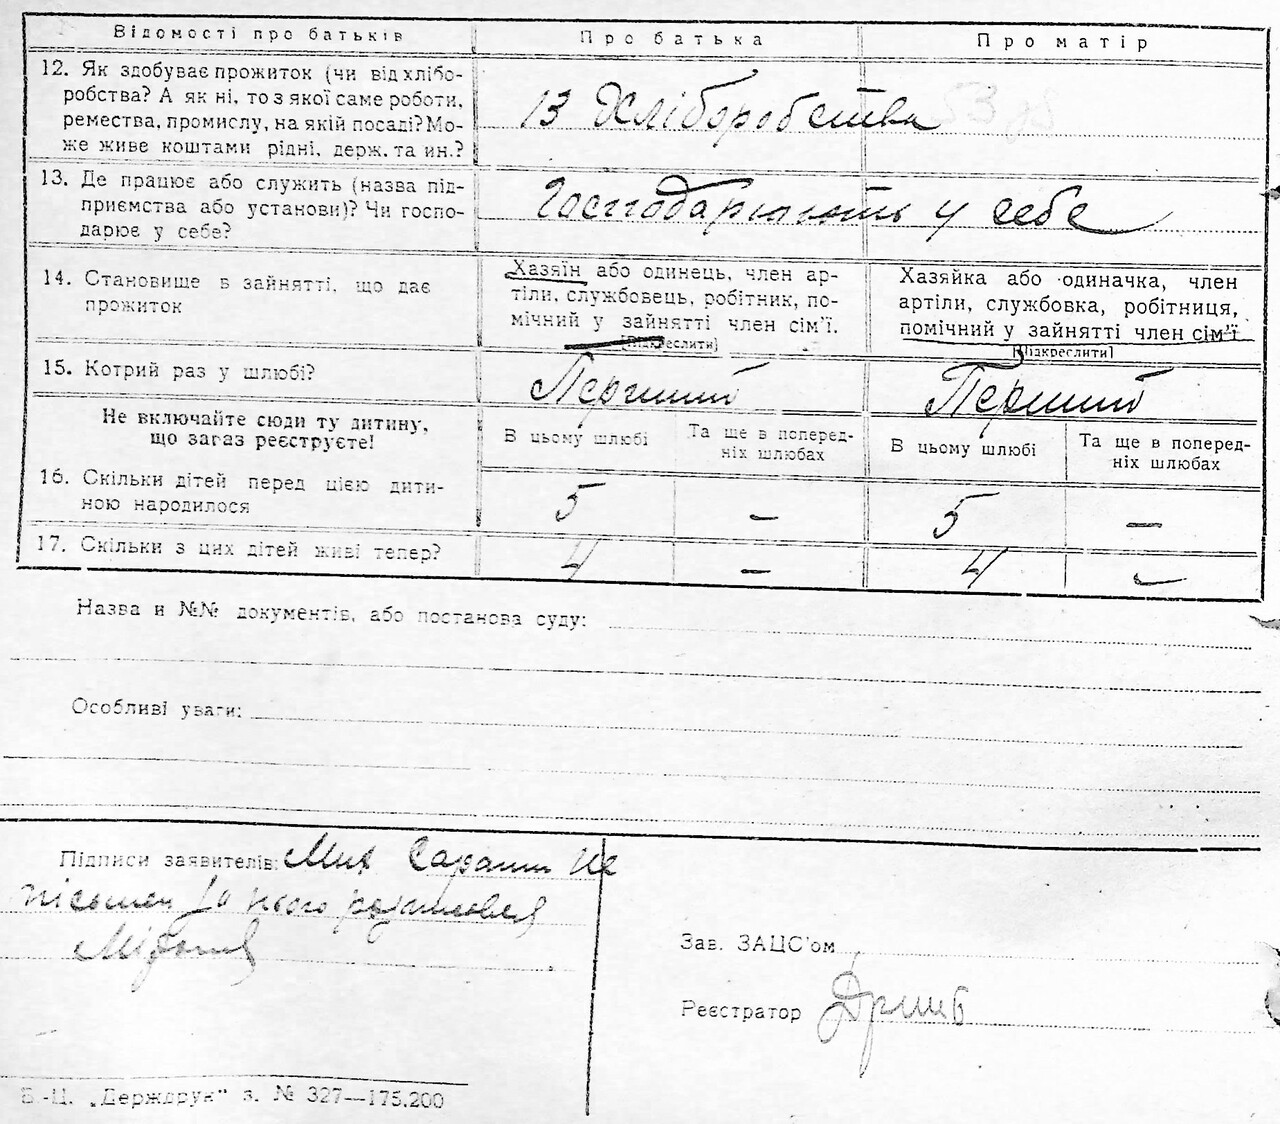 Відомості про батьків
Про батька
Про матір
12. Як здобуває прожиток (чи від хлібо-
робства? А як ні, то з якої саме роботи,
ремества, промислу, на якій посаді? Мо-
же живе коштами рідні, держ. та ин.?
Із Хліборобства
13. Де працює або служить (назва під-
приємства або установи)? Чи госпо-
дарює у себе?
Господарюють у себе
14. Становище в зайнятті, що дає
прожиток
Хазяїн або одинець, член ар-
тіли, службовець, робітник, по-
мічний у зайнятті член сім'ї.
[Підкреслити]
Хазяйка або одиначка, член
артіли, службовка, робітниця,
помічний у зайнятті член сім'ї.
[Підкреслити]
15. Котрий раз у шлюбі?
Перший
Перший
Не включайте сюди ту дитину,
що загаз реєструєте!
В цьому шлюбі
Та ще в поперед-
ніх шлюбах
В цьому шлюбі
Та ще в поперед-
ніх шлюбах
16. Скільки дітей перед цією дити-
ною народилося
5
–
5
–
17. Скільки з цих дітей живі тепер?
4
–
4
–
Назва и №№ документів, або постанова суду:
Особливі уваги:
Підписи заявителів: Мих Не
письмен за нього
Зав. ЗАЦС'ом
Реєстратор
Б.-Ц. „Держдрук" з. № 327—175.200